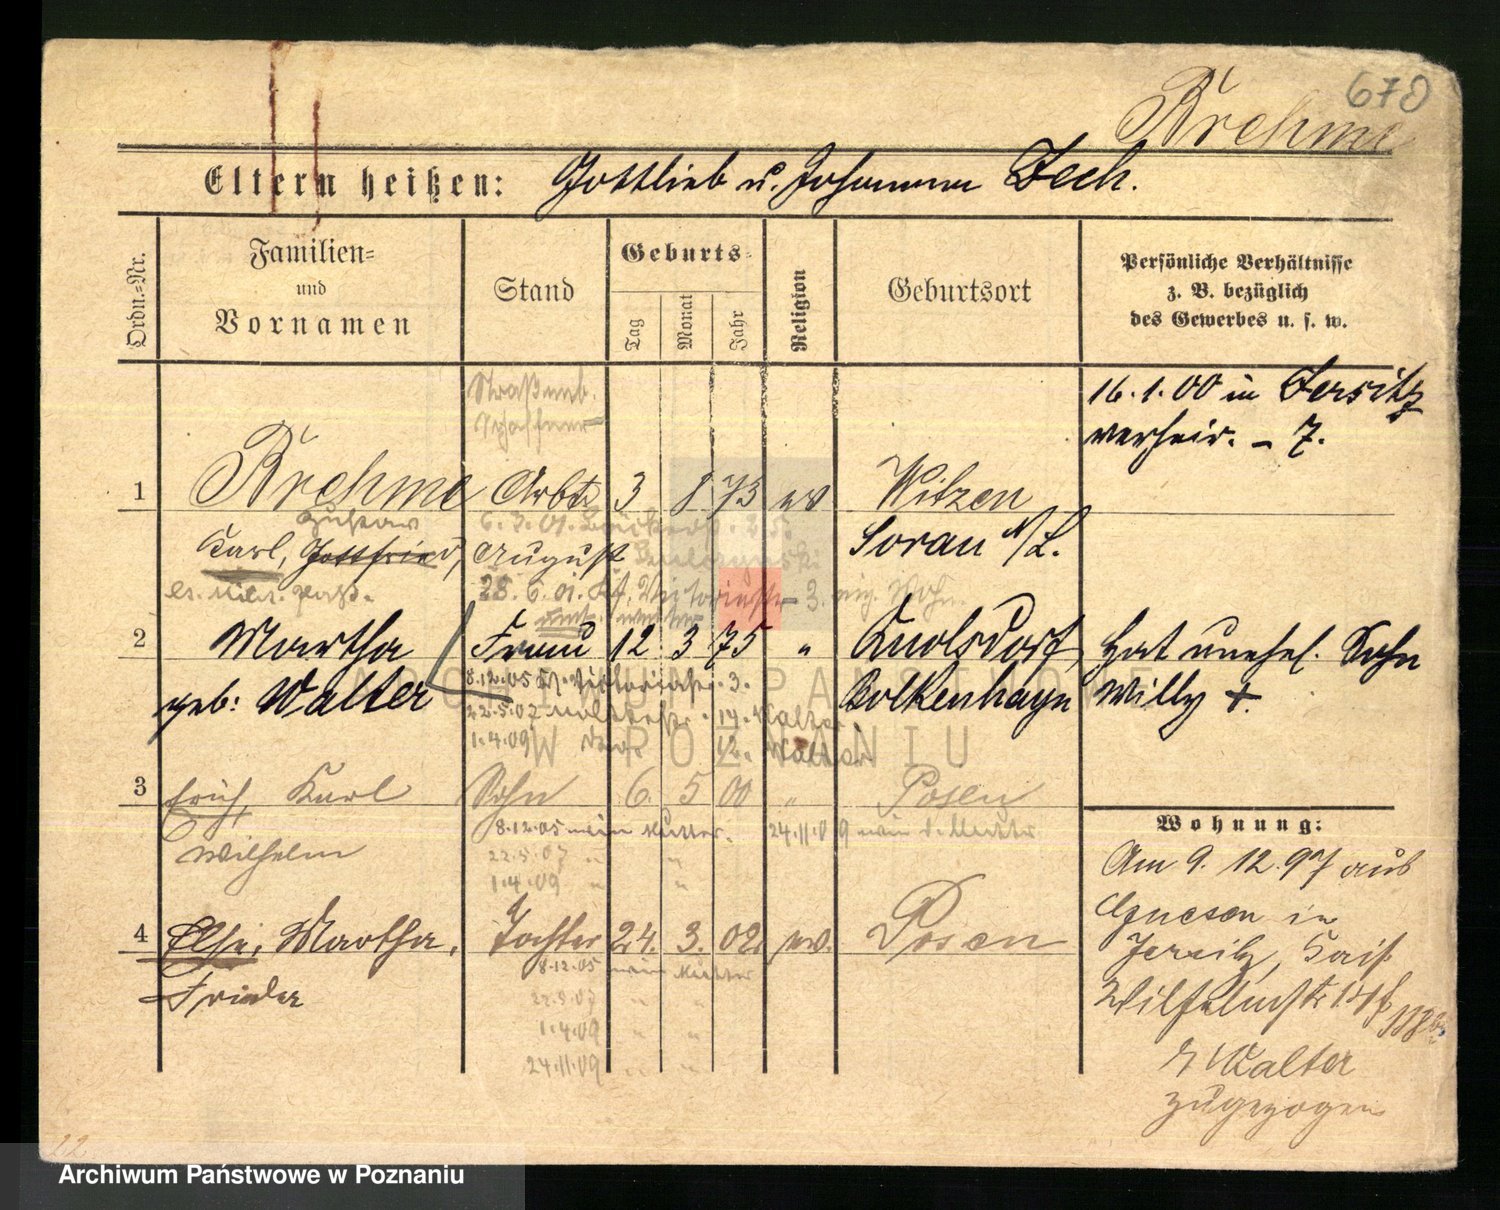 678
Brehme
Eltern heißen: Gottlieb u. Johanna Zech.
Ordn.=Nr.
Familien=
und
Vornamen
Stand
Geburts=
Tag
Monat
Jahr
Religion
Geburtsort
Persönliche Verhältnisse
z. B. bezüglich
des Gewerbes u. s. w.
Straßenb.
Schaffner
16. 1. 00 in Jersitz
verheir. – 7.
1 Brehme Arbtr 3 8 73 ev Witzen
Gustav
6. 3. 01.
Karl, Gottfried, August Sorau N/L.
28. 6. 01. 3.
2 Martha Frau 12 3 75 " Hat unehel. Sohn
geb: Walter Bolkenhayn Willy +.
8.12.05 3.
22.5.07 14. Walter
1.4.09 12. Walter
3 Erich, Karl Sohn 6. 5 00 " Posen
8.12.05 wie Mutter. 24.11.09 wie d. Mutter
Wilhelm
22.5.07 " "
1.4.09 " "
Wohnung:
Am 9. 12. 97 aus
Gnesen in
Jersitz, Kais.
Wilhelmstr
b/ Walter
zugezogen
4 Else, Martha, Tochter 24. 3. 02. ev. Posen
8.12.05 wie Mutter
Frieda
22.5.07 " "
1.4.09 " "
24.11.09 " "
ARCHIWUM PAŃSTWOWE
W POZNANIU
22
Archiwum Państwowe w Poznaniu